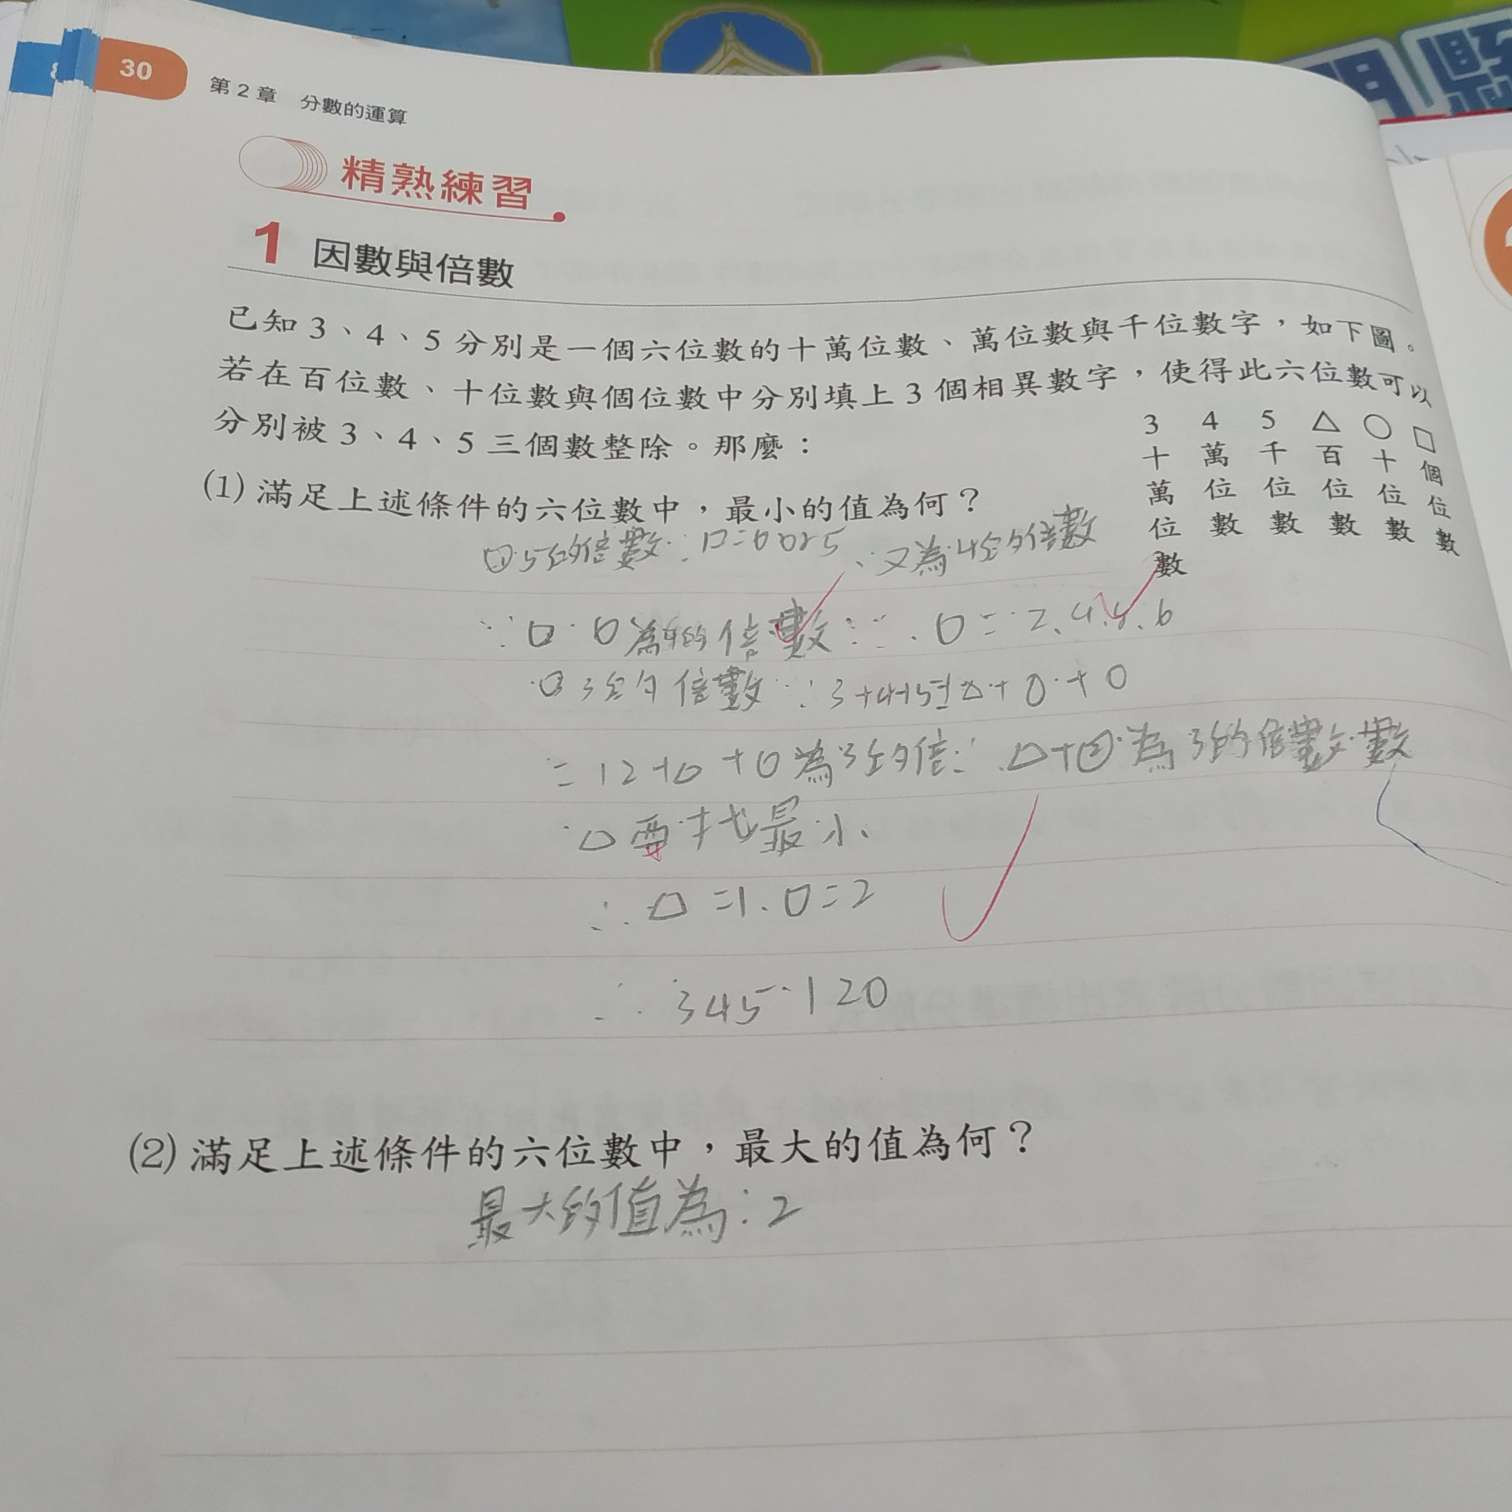 30
第2章 分數的運算
精熟練習
1 因數與倍數
已知3、4、5分別是一個六位數的十萬位數、萬位數與千位數字，如下圖。
若在百位數、十位數與個位數中分別填上3個相異數字，使得此六位數可以
分別被3、4、5三個數整除。那麼：
3 4 5 △ ○ □
十萬位數 萬位數 千位數 百位數 十位數 個位數
(1) 滿足上述條件的六位數中，最小的值為何？
5的倍數∴□=0or5 ∵又為4的倍數
為4的倍數
=2、4、
3的倍數∵3+4+5+△+0+0
=12+
為3的倍
為3的倍數
要找最小
∴△=1、0=2
∴345120
(2) 滿足上述條件的六位數中，最大的值為何？
最大的值為：2